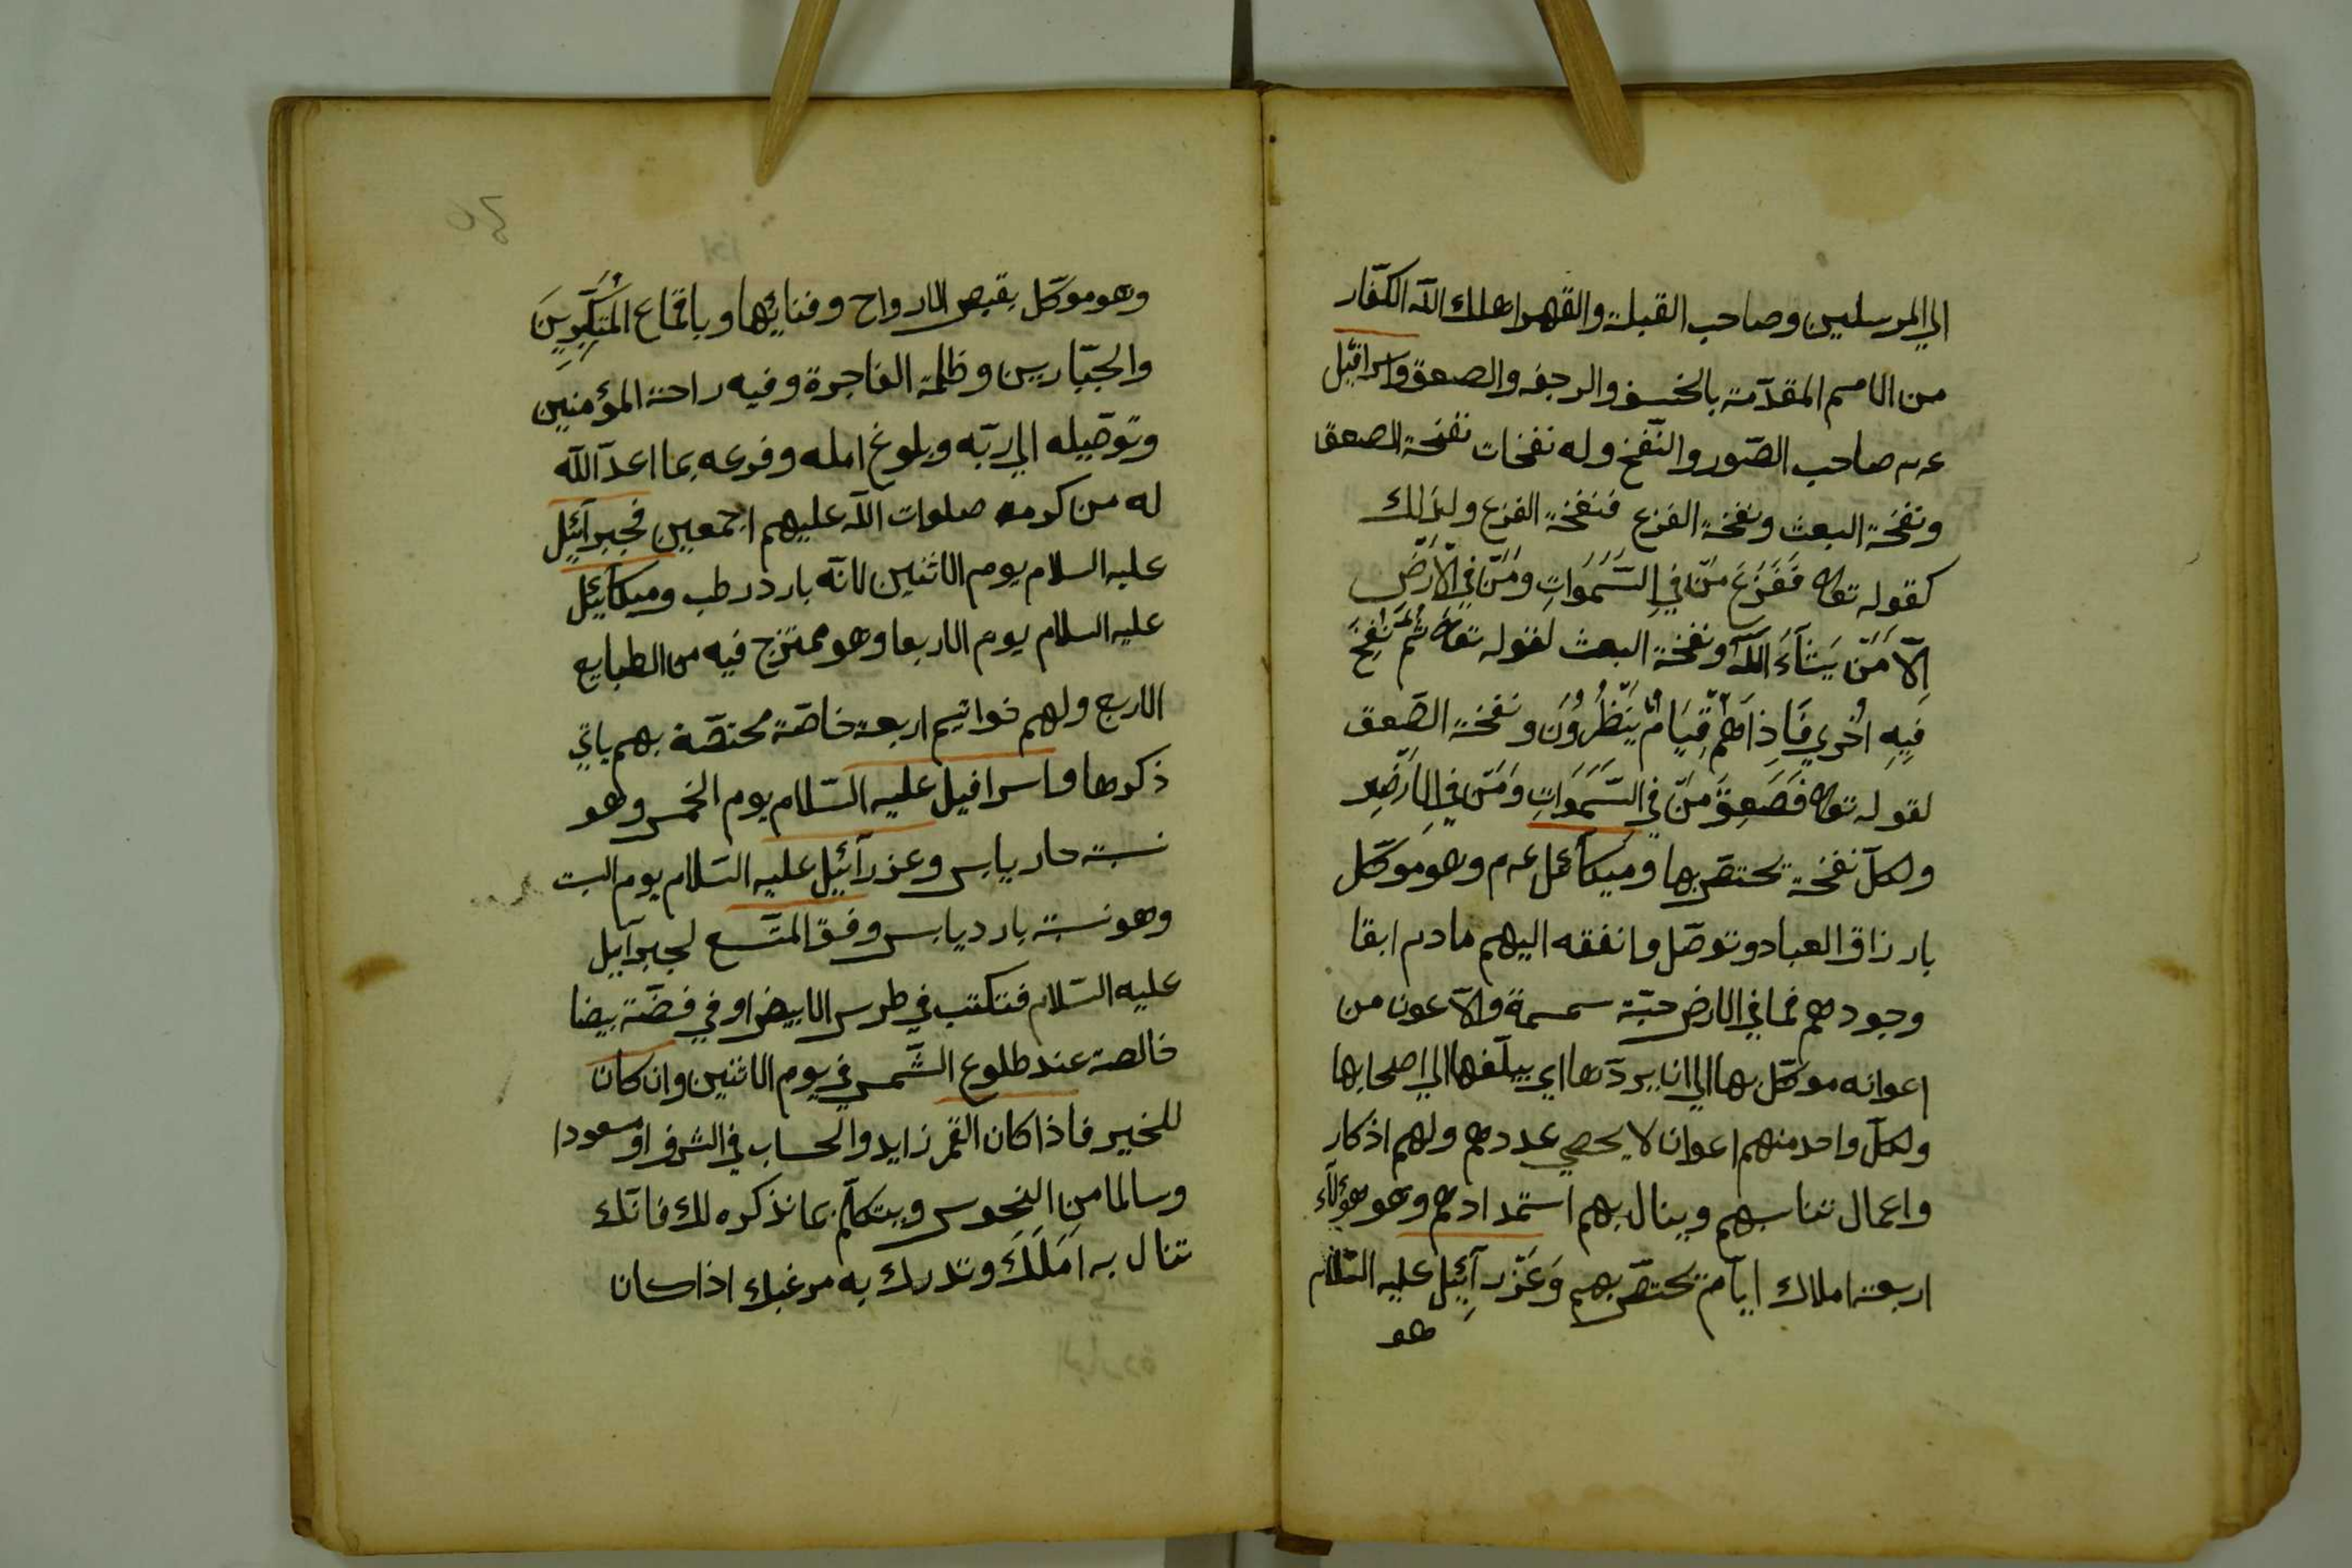 الي المرسلين وصاحب القبلة والقهر اهلك الله الكفّار
من الامم المقدّمة بالخسف والرجفه والصعق واسرافيل
عم صاحب الصّور والنّفخ وله نفخات نفخة الصعق
ونفخة البعث ونفخة الفزع فنفخة الفزع ولذلك
كقوله تعالى فَفَزِعَ مَنْ فِي السَّمَوَاتِ وَمَنْ فِي الْاَرْضِ
اِلَّا مَنْ يَشَآءَ اللّٰه ونفخة البعث لقوله تعالى ثُمَّ نُفِخَ
فِيهِ اُخْرَي فَاِذَا هُمْ قِيَامٌ يَنْظُرُونَ ونفخة الصّعق
لقوله تعالى فَصَعِقَ مَنْ فِي السَّمَوَاتِ وَمَنْ فِي الْاَرْضِ
ولكلّ نفخة تختصّ بها وميكائل عم وهو موكّل
بارزاق العباد وتوصّل وانفقه اليهم مادم ابقا
وجودهم فما في الارض حبّة سمسمة والّا عون من
اعوانه موكّل بها الي ان يردّها اي يبلّغها الي اصحابها
ولكلّ واحد منهم اعوان لا يحصي عددهم ولهم اذكار
واعمال تناسبهم وينال بهم استمدادهم وهو هؤلاء
اربعة املاك ايام تختصّ بهم وَعَزْرَآئِيل عليه السّلام
هو
وهو موكّل بقبض الارواح وفنائها وباقماع المُتَكَبِّرِينَ
والجبّارين وظلمة الفاجرة وفيه راحة المؤمنين
وتوصّيله الي ربّه وبلوغ امله وفرعه بما اعدّ الله
له من كرمه صلوات الله عليهم اجمعين فجبرآئيل
عليه السلام يوم الاثنين لانّه بارد رطب وميكآئيل
عليه السلام يوم الاربعا وهو ممتزج فيه من الطبايع
الاربع ولهم خواتيم اربعة خاصّة مختصّة بهم ياتي
ذكرها واسرافيل عليه السّلام يوم الخمس وهو
نسبة حار يابس وعزرآئيل عليه السّلام يوم السبت
وهو نسبة بارد يابس وفق المتسع لجبرآيل
عليه السّلام فتكتب في طرس الابيض او في فضّة بيضا
خالصة عند طلوع الشّمس في يوم الاثنين وان كان
للخير فاذا كان القمر زايد والحساب في الشرف او مسعودا
وسالما من النحوس ويتكلّم بما نذكره لك فانّك
تنال به اَمَلَكَ وتدرك به مرغبك اذا كان